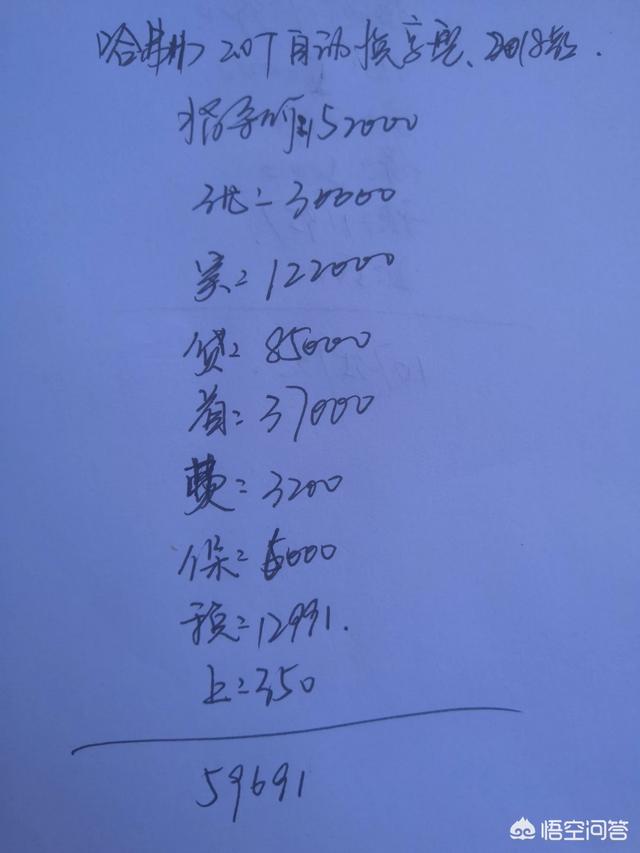 哈弗 20T自动享型、2018款.
指导价:152000
优=30000
实=122000
贷=85000
首=37000
费=3200
保=6000
税=12991.
上=350
59691
悟空问答